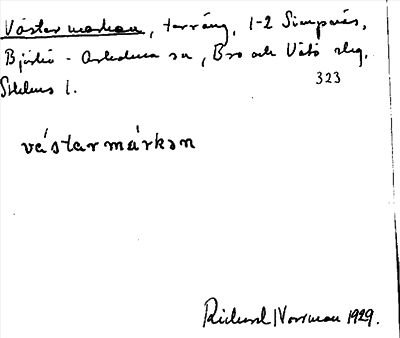 Västermarken, terräng, 1-2 Simpnäs,
Björkö - Arholma sn, Bro och Vätö slg,
Sthlms l.
323
västarmárkən
Richard Norrman 1929.